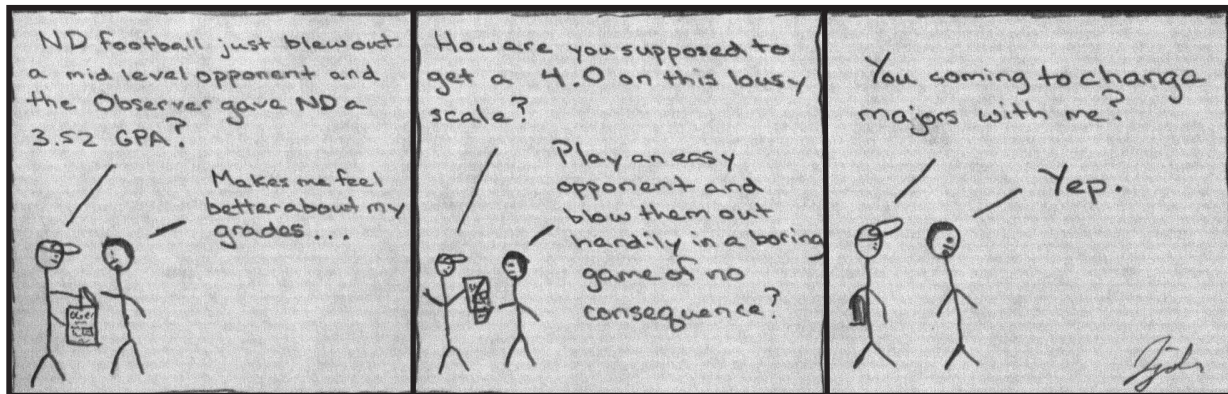 ND football just blew out
a mid level opponent and
the Observer gave ND a
3.52 GPA?
Makes me feel
better about my
grades...
How are you supposed to
get a 4.0 on this lousy
scale?
Play an easy
opponent and
blow them out
handily in a boring
game of no
consequence?
You coming to change
majors with me?
Yep.